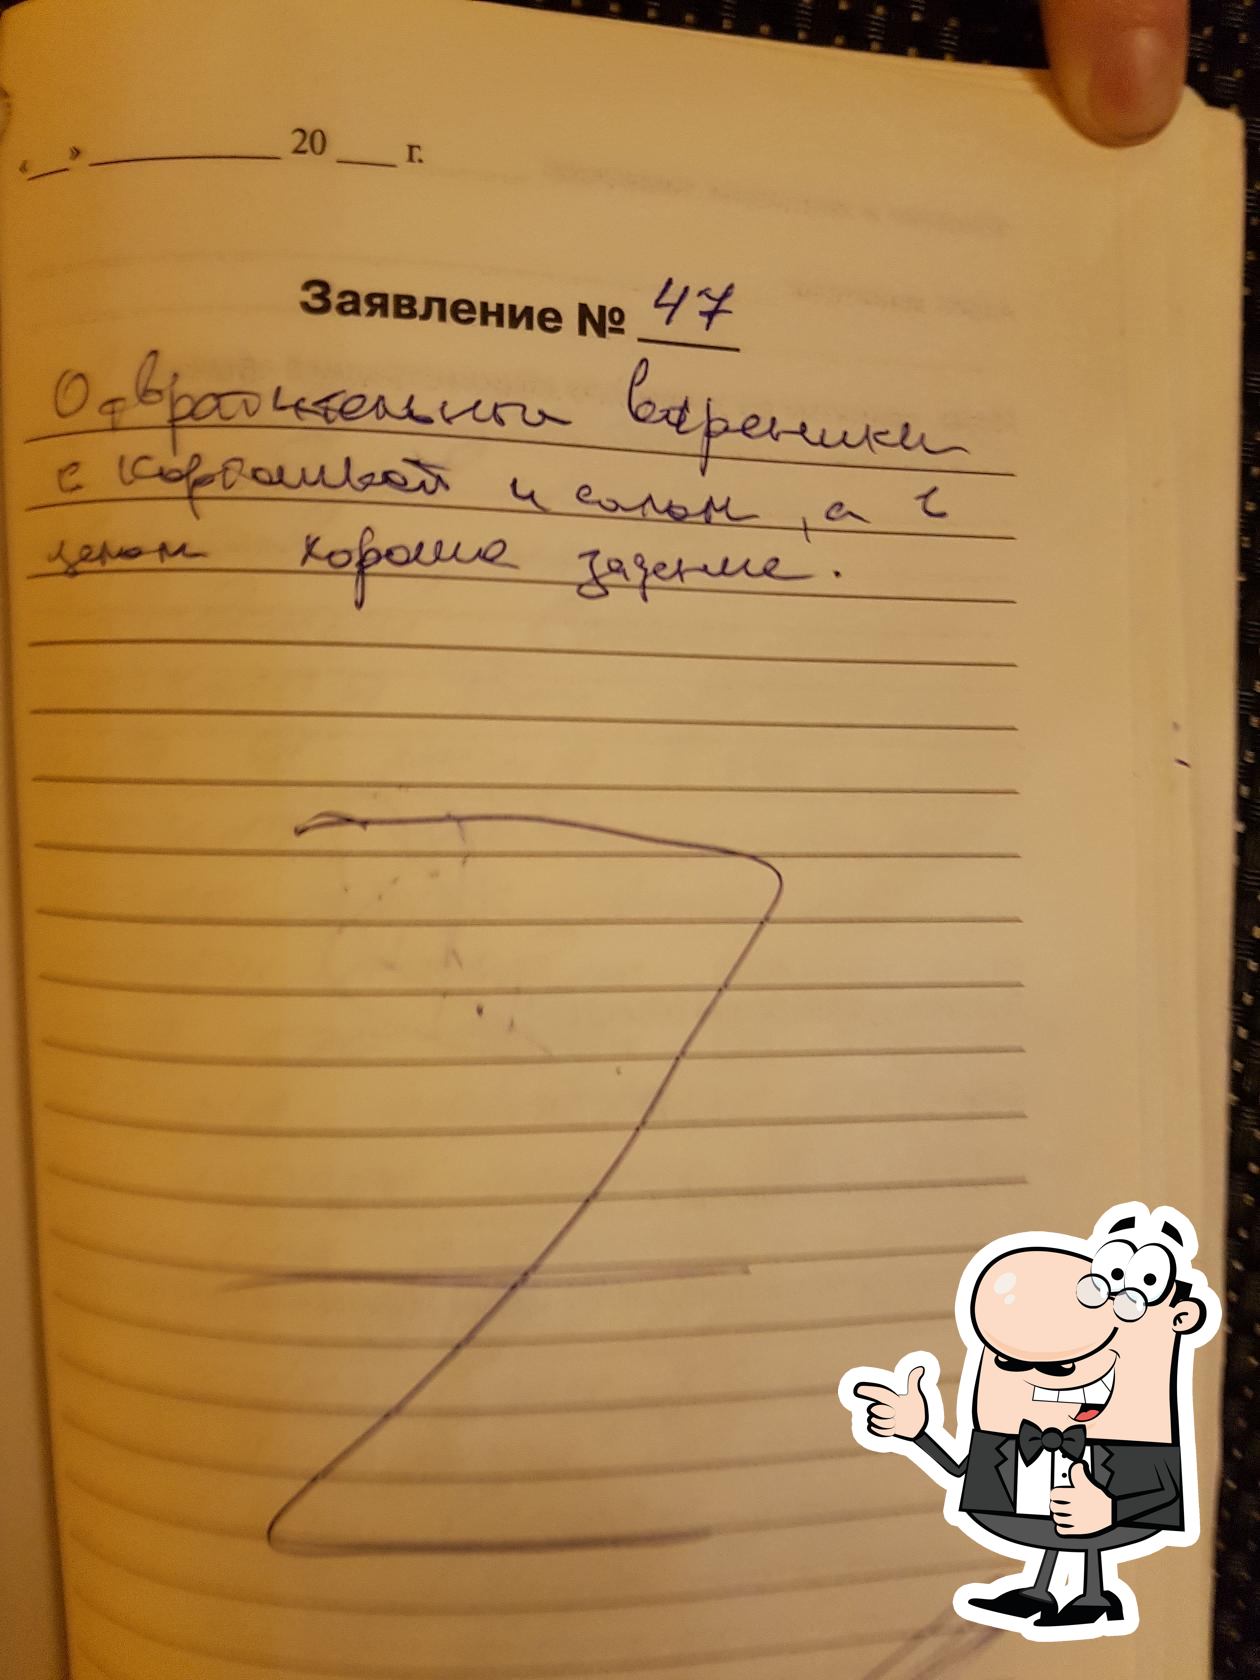 «__» ________ 20 ___ г.
Заявление № 47
Отвратительные вареники
с картошкой и салом, а в
целом хорошее заведение.